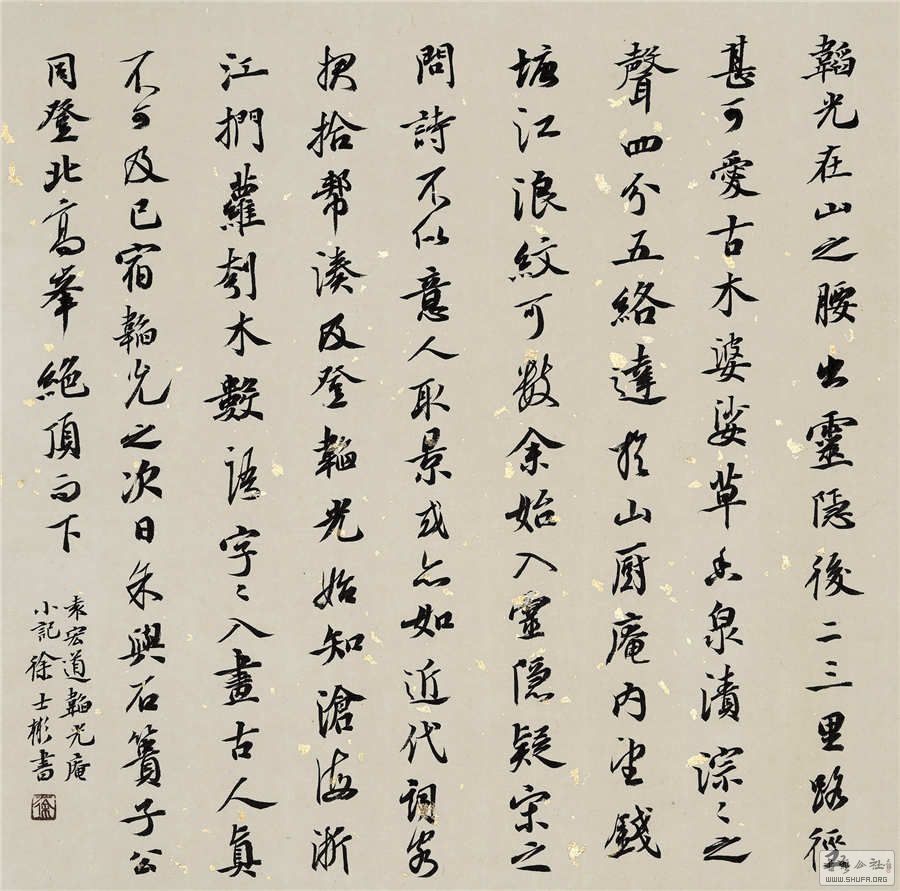 韜光在山之腰出靈隱後二三里路徑
甚可愛古木婆娑草香泉漬淙〻之
聲四分五絡達於山厨庵内望錢
塘江浪紋可數余始入靈隱疑宋之
問詩不似意人取景或亦如近代詞客
捃拾帮湊及登韜光始知滄海浙
江捫蘿刳木數語字〻入畫古人真
不可及已宿韜光之次日余與石簣子公
同登北高峯絕頂而下
袁宏道韜光庵
小記徐士彬書
WWW.SHUFA.ORG